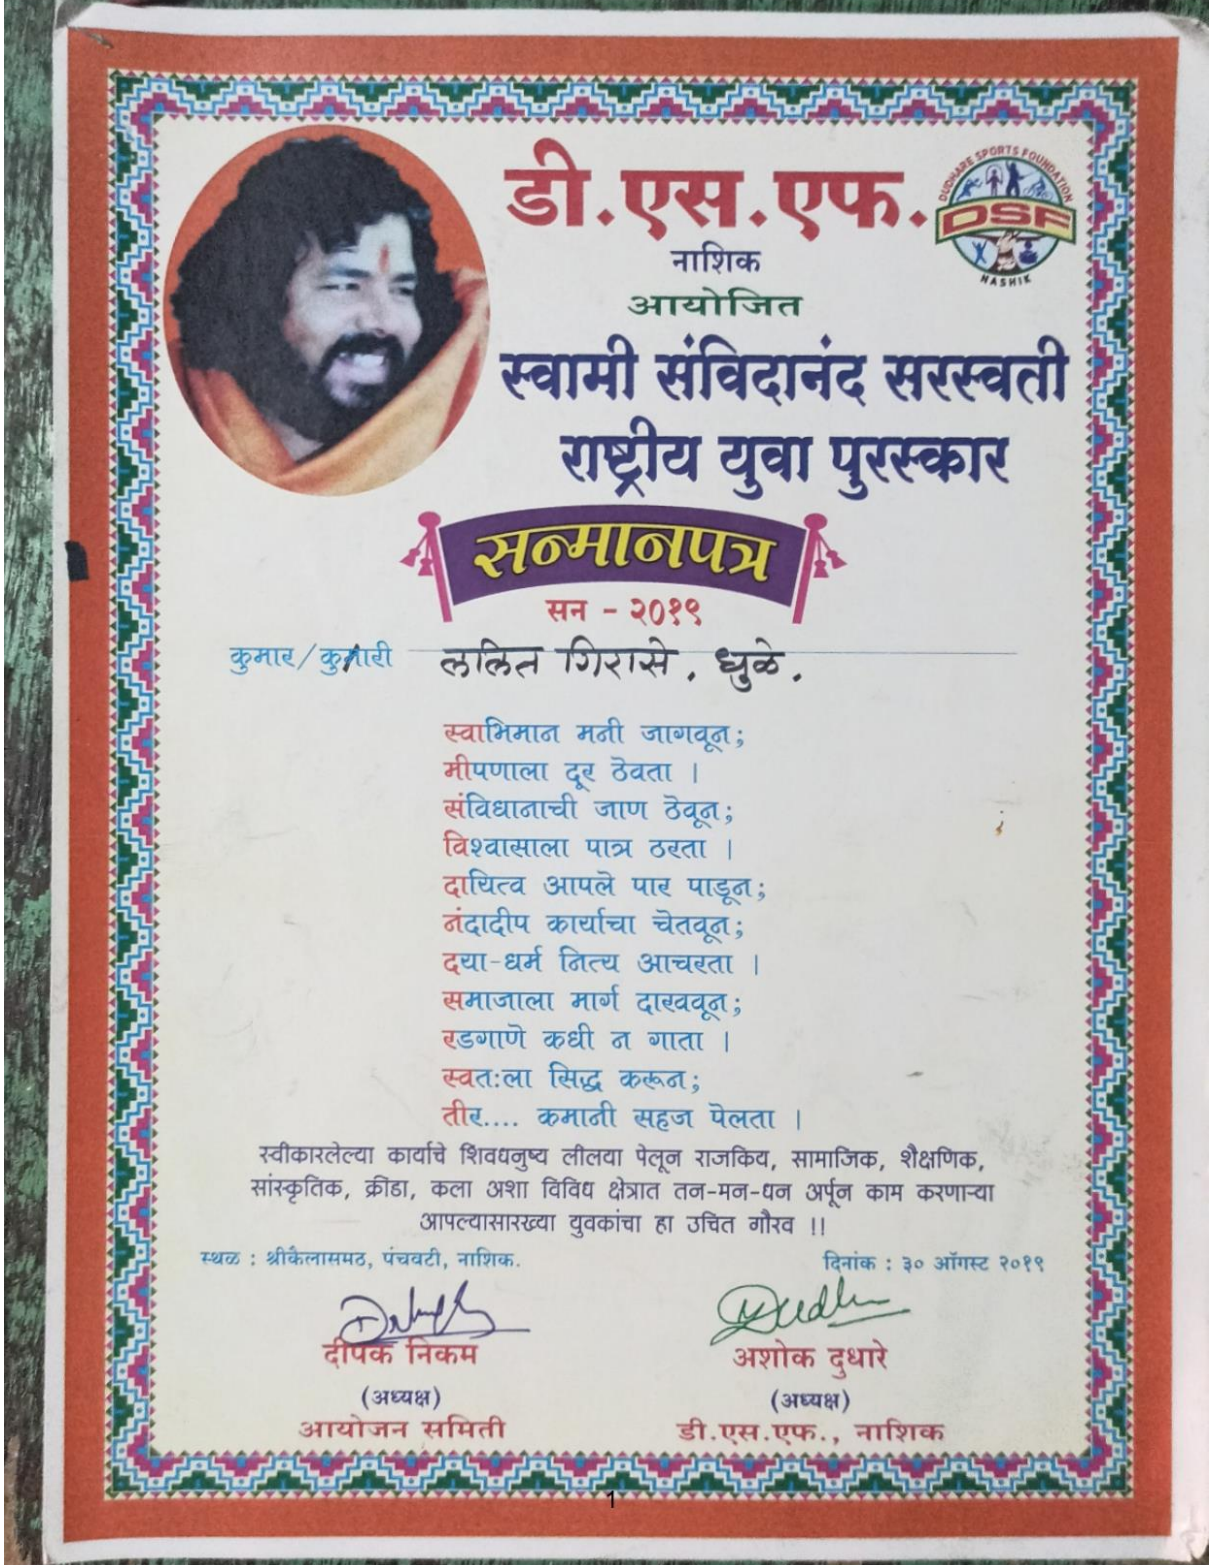 डी.एस.एफ.
DUDHARE SPORTS FOUNDATION
DSF
NASHIK
नाशिक
आयोजित
स्वामी संविदानंद सरस्वती
राष्ट्रीय युवा पुरस्कार
सन्मानपत्र
सन - २०१९
कुमार/कुमारी ललित गिरासे, धुळे.
स्वाभिमान मनी जागवून;
मीपणाला दूर ठेवता ।
संविधानाची जाण ठेवून;
विश्वासाला पात्र ठरता ।
दायित्व आपले पार पाडून;
नंदादीप कार्याचा चेतवून;
दया-धर्म नित्य आचरता ।
समाजाला मार्ग दाखवून;
रडगाणे कधी न गाता ।
स्वत:ला सिद्ध करून;
तीर.... कमानी सहज पेलता ।
स्वीकारलेल्या कार्याचे शिवधनुष्य लीलया पेलून राजकिय, सामाजिक, शैक्षणिक,
सांस्कृतिक, क्रीडा, कला अशा विविध क्षेत्रात तन-मन-धन अर्पून काम करणाऱ्या
आपल्यासारख्या युवकांचा हा उचित गौरव !!
स्थळ : श्रीकैलासमठ, पंचवटी, नाशिक. दिनांक : ३० ऑगस्ट २०१९
दीपक निकम अशोक दुधारे
(अध्यक्ष) (अध्यक्ष)
आयोजन समिती डी.एस.एफ., नाशिक
1